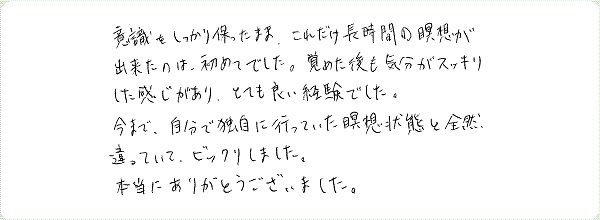 意識をしっかり保ったまま、これだけ長時間の瞑想が
出来たのは、初めてでした。覚めた後も気分がスッキリ
した感じがあり、とても良い経験でした。
今まで、自分で独自に行っていた瞑想状態と全然、
違っていて、ビックリしました。
本当にありがとうございました。